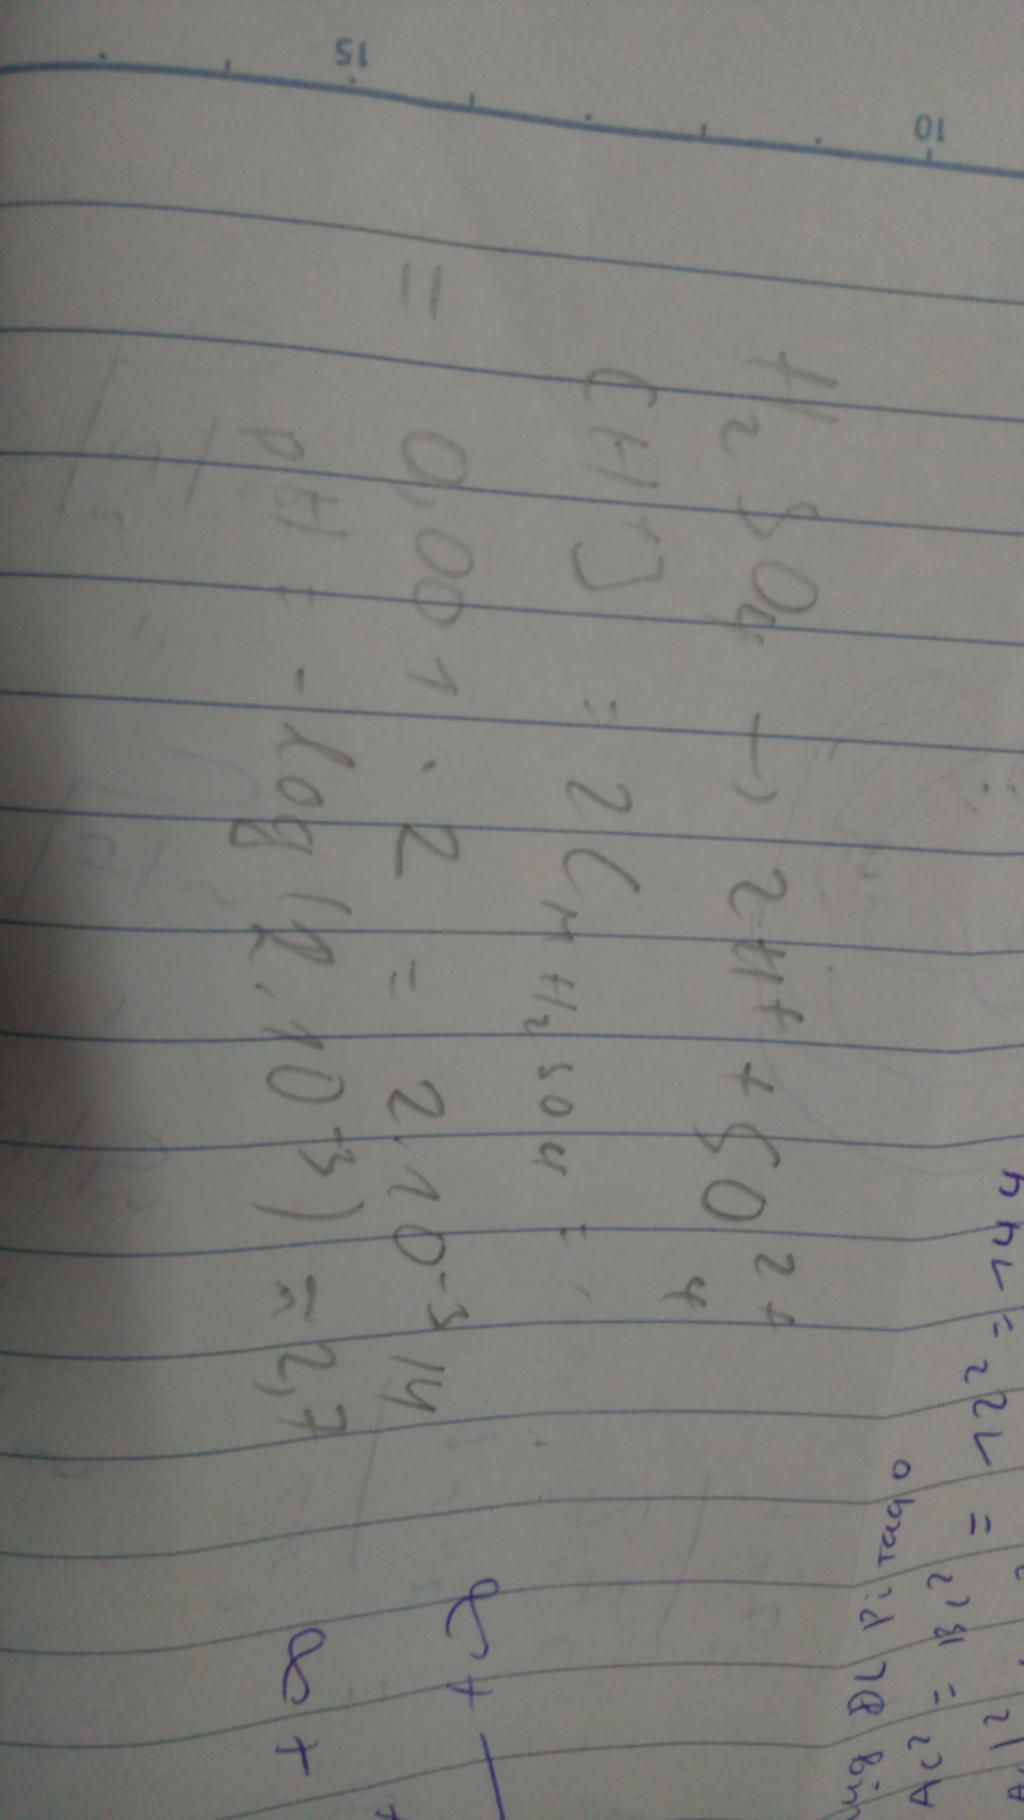 H2SO4 → 2H+ + SO4 2+
[H+] = 2 CM H2SO4 =
= 0,001 . 2 = 2.10-3 M
pH = -log (2.10-3) ≈ 2,7
15
10
ĐL Pi.tago
AC2 = BC2
= 122 = 144